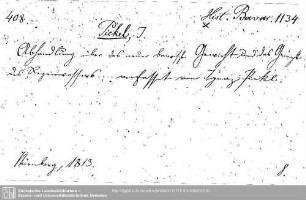 408. Hist. Bavar. 1134
Pickel, J.
Abhandlung über das neue bairische Gewicht, und das Gewicht
des Regenwassers verfasst von Ignaz Pickel.
Nürnberg, 1813. 8.
Sächsische Landesbibliothek -
Staats- und Universitätsbibliothek Dresden